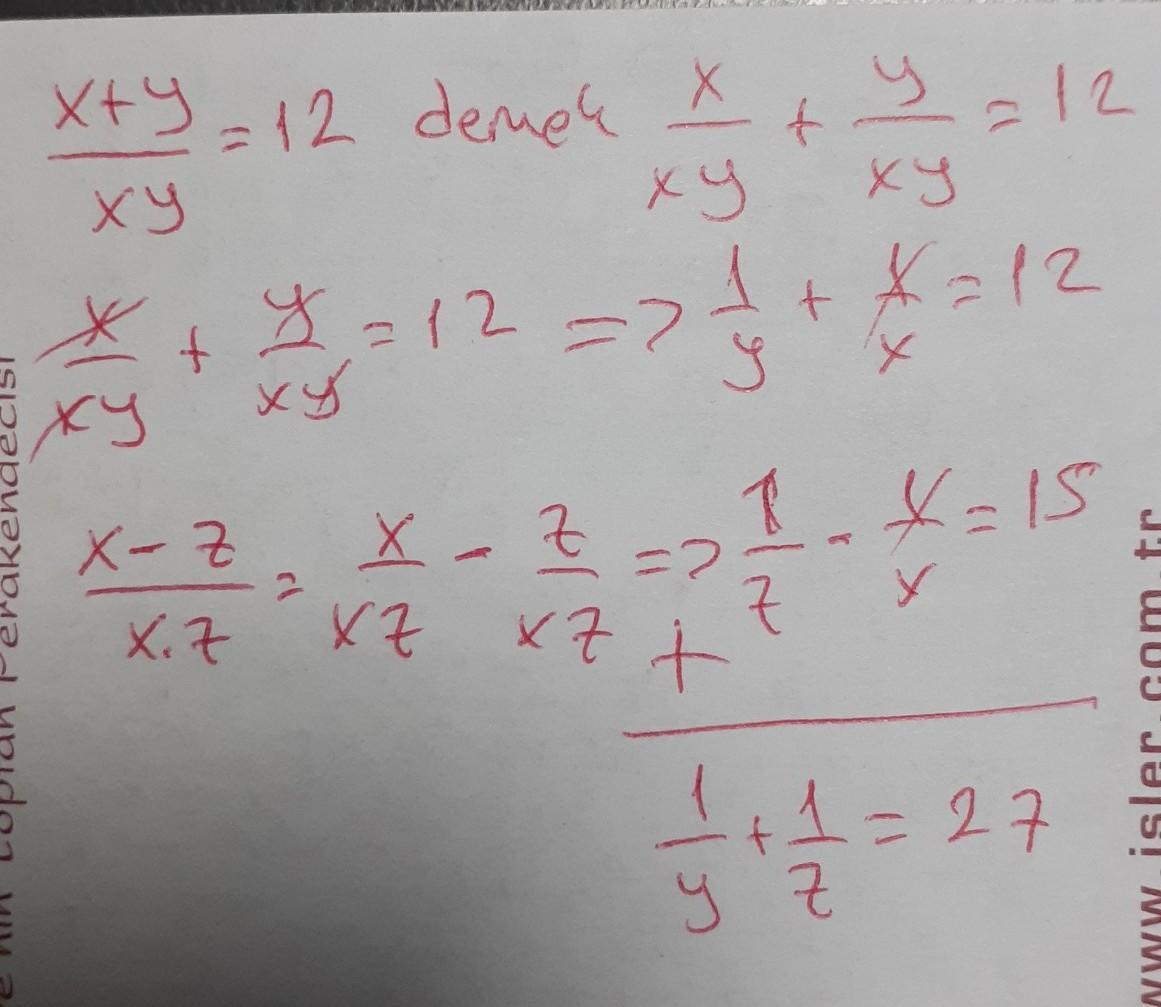 x+y/xy = 12 demek x/xy + y/xy = 12
x/xy + y/xy = 12 => 1/y + 1/x = 12
x-z/x.z = x/xz - z/xz => 1/z - 1/x = 15
+
1/y + 1/z = 27
Perakendecisi
www.isler.com.tr